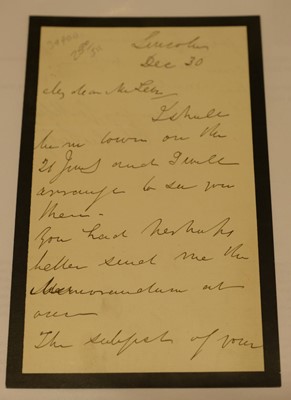 Lincoln
Dec 30
My dear Mr Lee
I shall
be in town on the
2d Jany and I will
arrange to see you
then -
You had perhaps
better send me the
Memorandum at
once
The subject of your